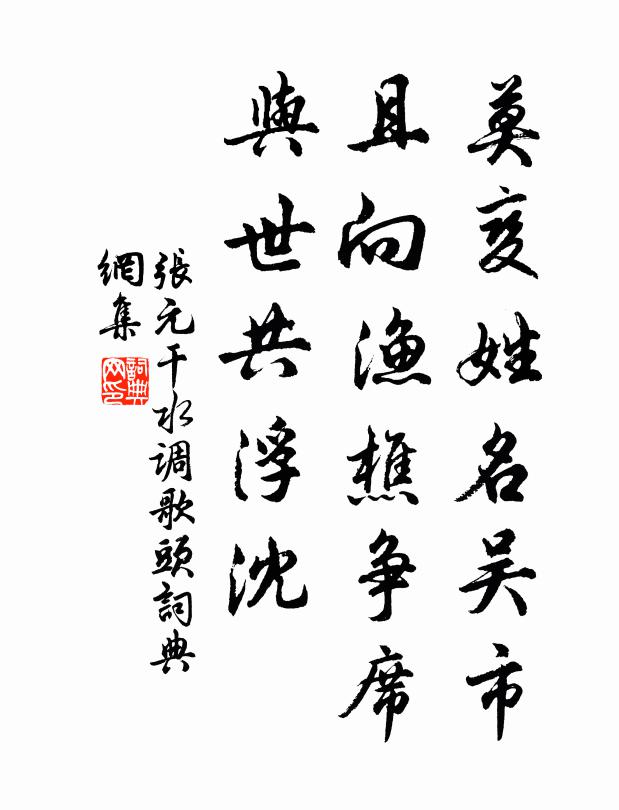 莫变姓名吴市
且向渔樵争席
與世共浮沈
張元干水调歌頭詞典
網集
詞典网印